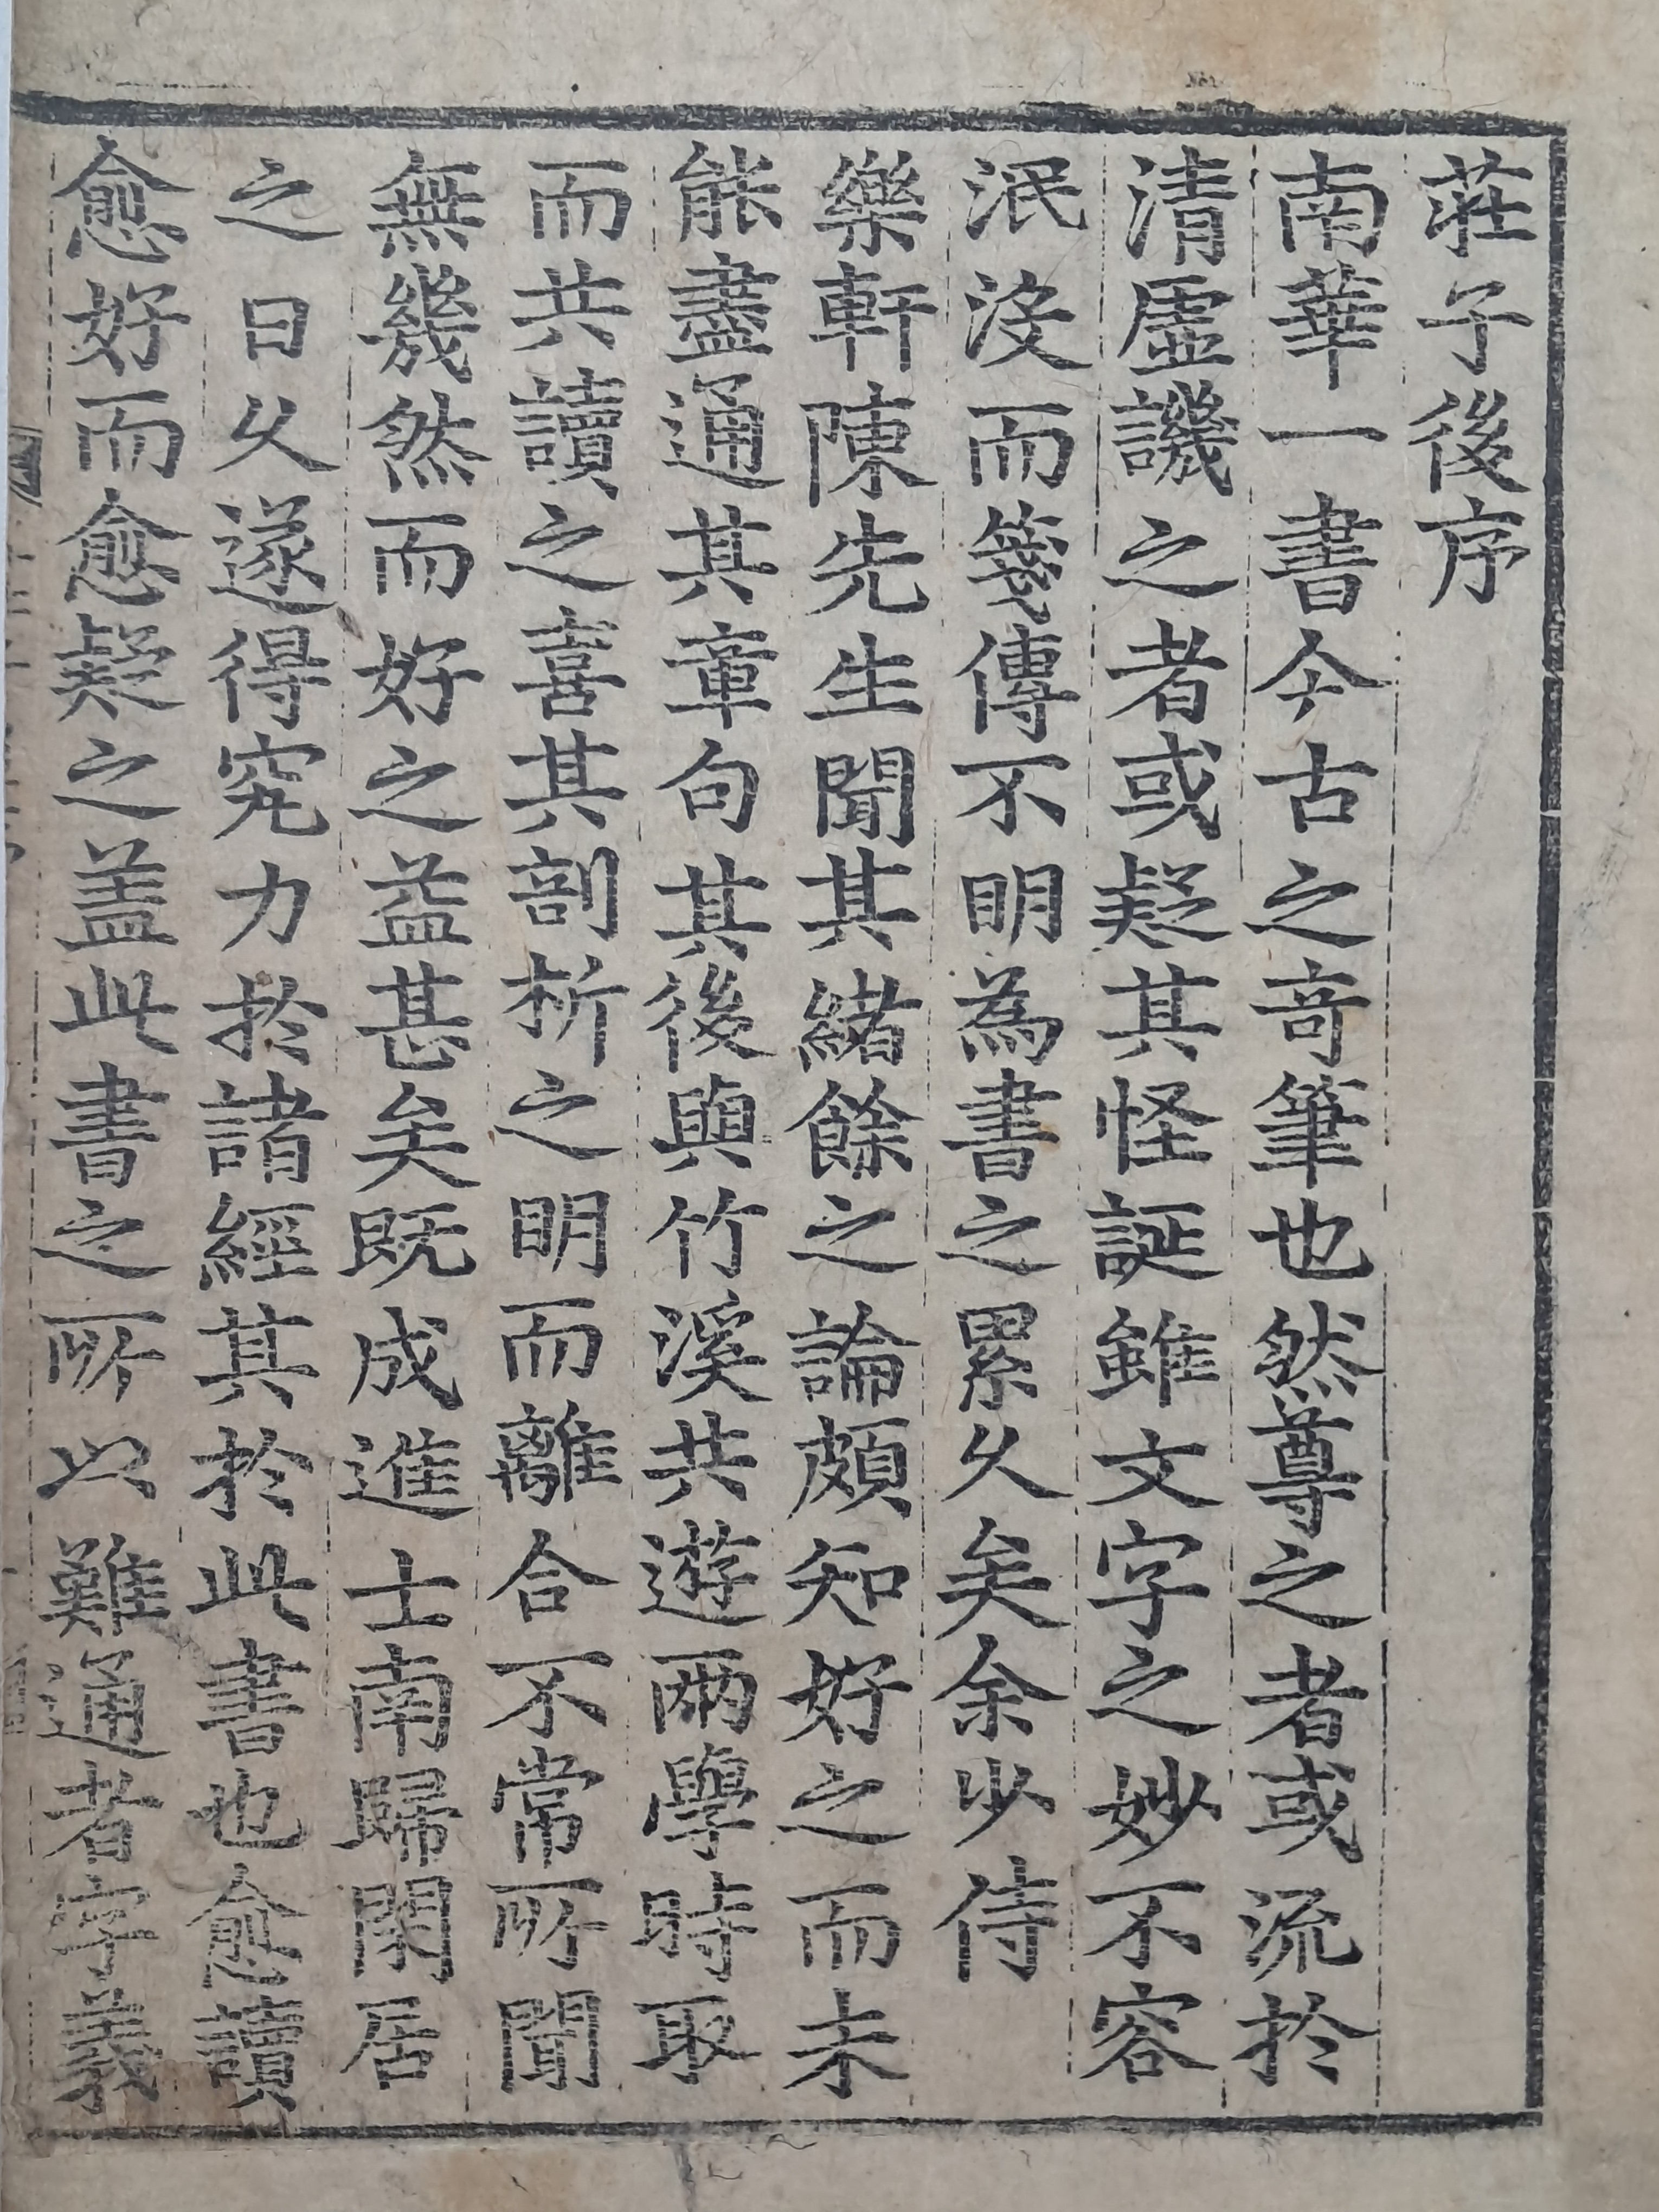 莊子後序
南華一書今古之竒筆也然尊之者或流於
清虛譏之者或疑其怪誕雖文字之妙不容
泯沒而箋傳不明為書之累久矣余少侍
樂軒陳先生聞其緒餘之論頗知好之而未
能盡通其章句其後與竹溪共遊兩學時取
而共讀之喜其剖析之明而離合不常所聞
無幾然而好之益甚矣既成進士南歸閑居
之日久遂得究力於諸經其於此書也愈讀
愈好而愈疑之蓋此書之所以難通者字義